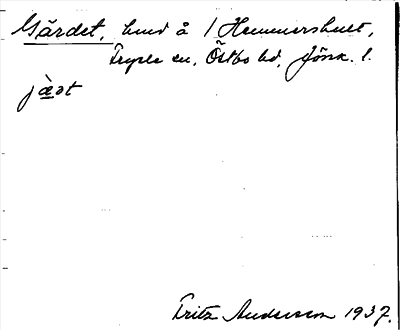 Gärdet, hmd å 1 Hemmershult,
Fryele sn, Östbo hd, Jönk. l.
jæ̀ꞛt
Fritz Andersson 1937.